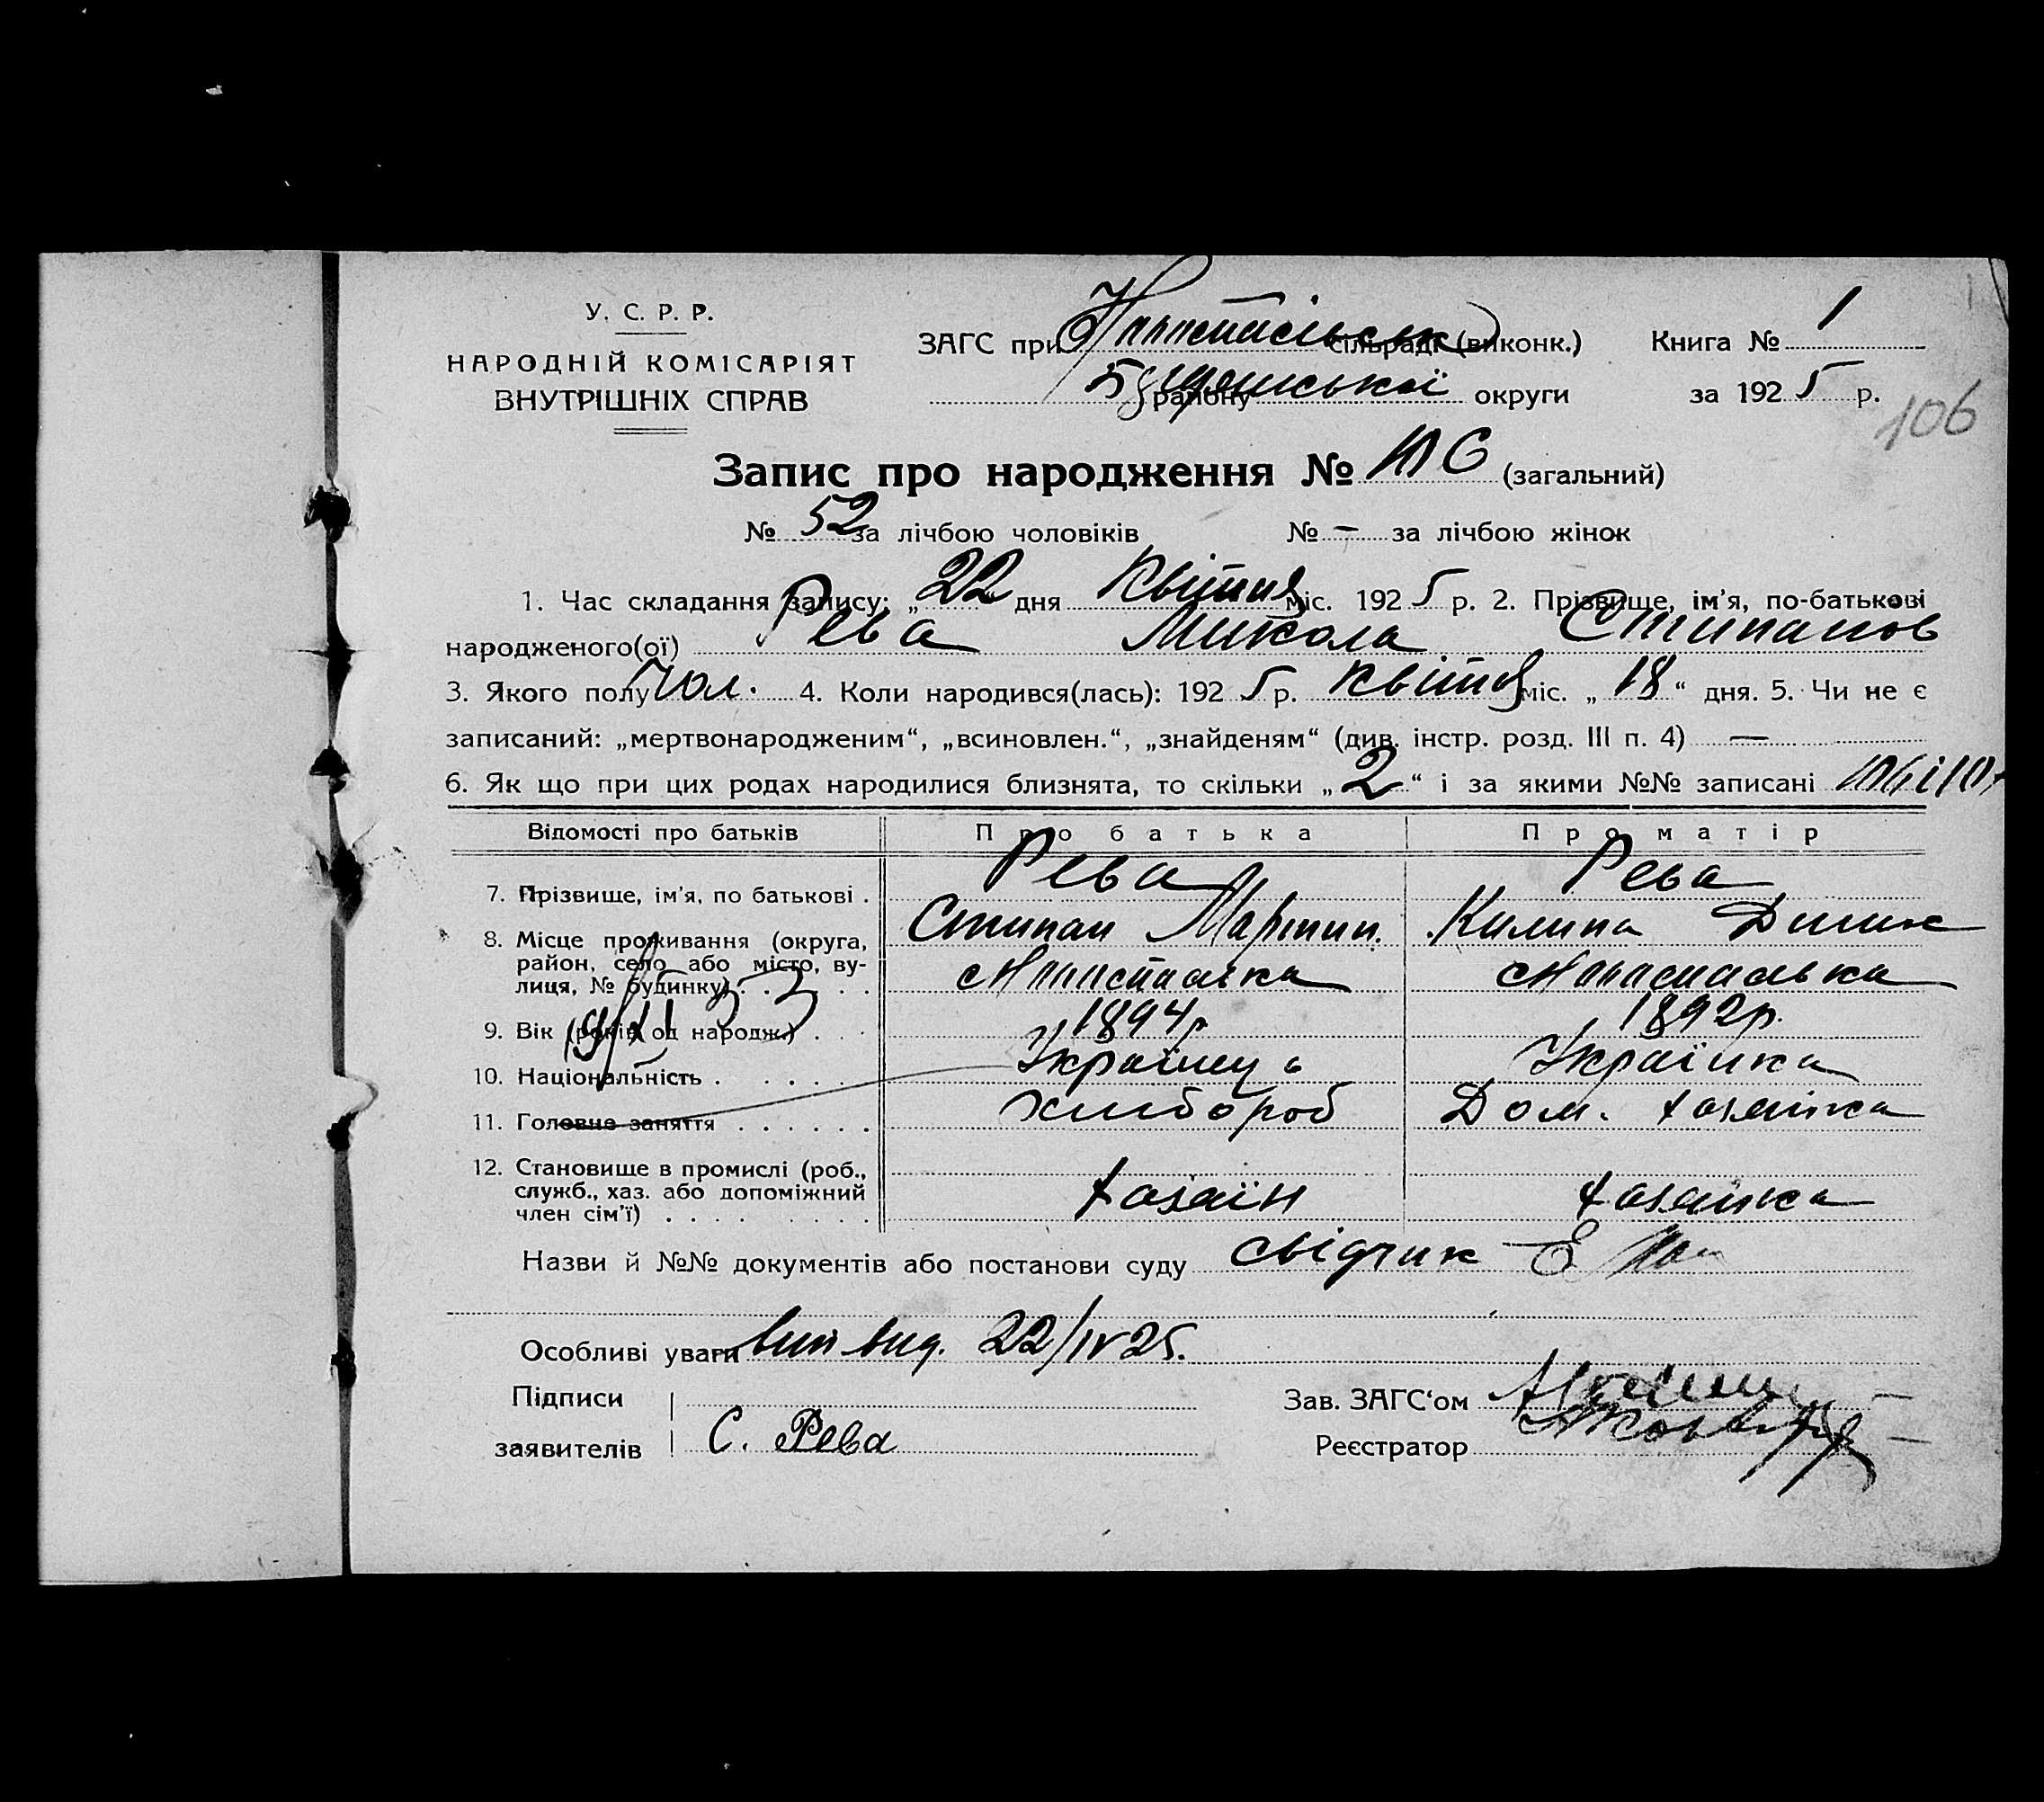 У. С. Р. Р.
НАРОДНІЙ КОМІСАРІЯТ
ВНУТРІШНІХ СПРАВ
ЗАГС при сільраді (виконк.) Книга № 1
району округи за 1925 р.
106
Запис про народження № 106 (загальний)
№ 52 за лічбою чоловіків № — за лічбою жінок
1. Час складання запису: „22“ дня Квітня міс. 1925 р. 2. Прізвище, ім'я, по-батькові
народженого(ої) Рева Микола Стипанов
3. Якого полу Чол. 4. Коли народився(лась): 1925 р. Квітня міс. „18“ дня. 5. Чи не є
записаний: „мертвонародженим“, „всиновлен.“, „знайденям“ (див. інстр. розд. III п. 4) —
6. Як що при цих родах народилися близнята, то скільки „2“ і за якими №№ записані
Відомості про батьків Про батька Про матір
7. Прізвище, ім'я, по батькові . Рева Рева
Стипан Мартин. Килина
8. Місце проживання (округа,
район, село або місто, ву-
лиця, № будинку) . . . . .
9. Вік (років од народж.) . . 1894р 1892р.
10. Національність . . . . Українець Українка
11. Головне заняття . . . . . . Хлибороб Дом. хазяйка
12. Становище в промислі (роб.,
служб., хаз. або допоміжний
член сім'ї) . . . . . . . . хазяїн хазяйка
Назви й №№ документів або постанови суду
Особливі уваги вип вид. 22/IV 25.
Підписи Зав. ЗАГС'ом
заявителів С. Рева Реєстратор